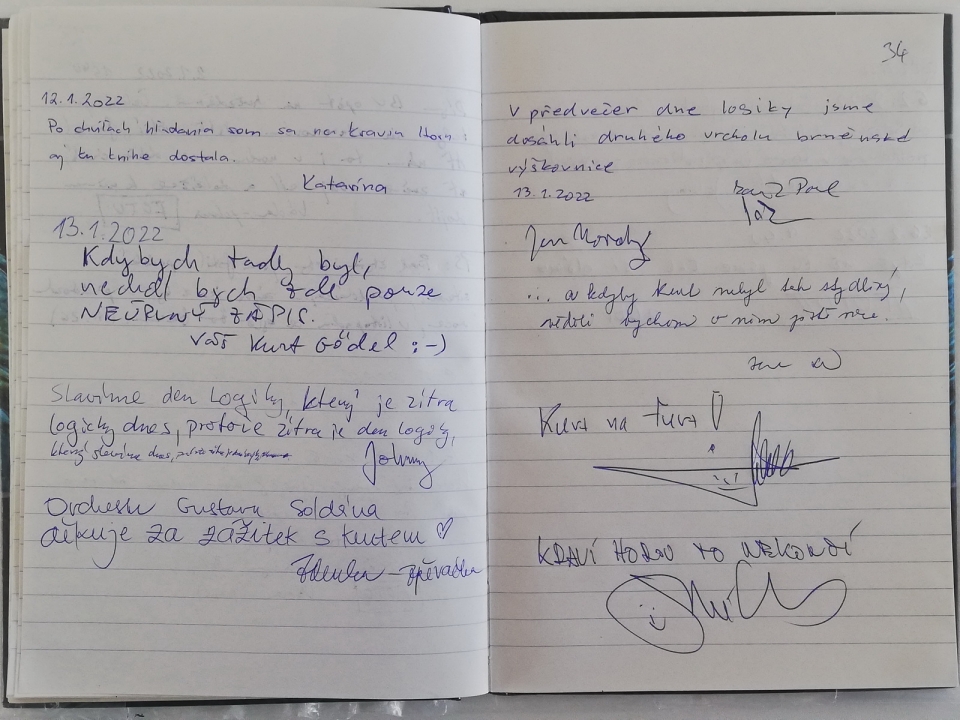 12.1.2022
Po chvíľach hľadania som sa na Kraviu Horu
aj ku knihe dostala.
Katarína
13.1.2022
Kdybych tady byl,
nedal bych zde pouze
NEÚPLNÝ ZÁPIS.
Váš Kurt Gödel :-)
Slavíme den logiky, který je zítra
logicky dnes, protože zítra je den logiky,
který slavíme dnes,
Johnny
Orchestr Gustava
děkuje za zážitek s Kurtem ♡
Zdenka - zpěvačka
34
V předvečer dne logiky jsme
dosáhli druhého vrcholu brněnské
výškovnice
13.1.2022
Jan
... a kdyby Kurt nebyl tak stydlivý,
bychom o něm ještě více.
Kurt na turt!
KRAVÍ HOROU TO NEKONČÍ